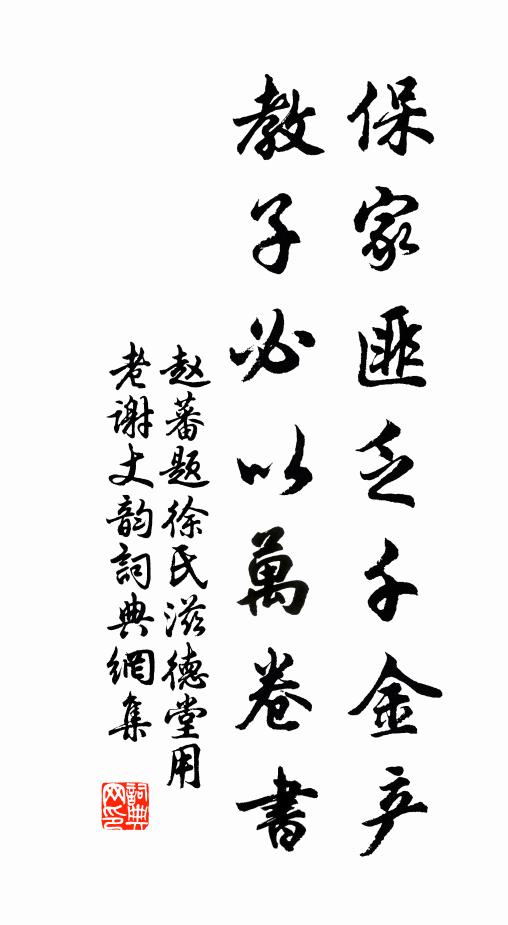 保家匪乏千金产
教子必以萬卷書
赵蕃题徐氏滋德堂用
老谢丈韵詞典網集
詞典
网印